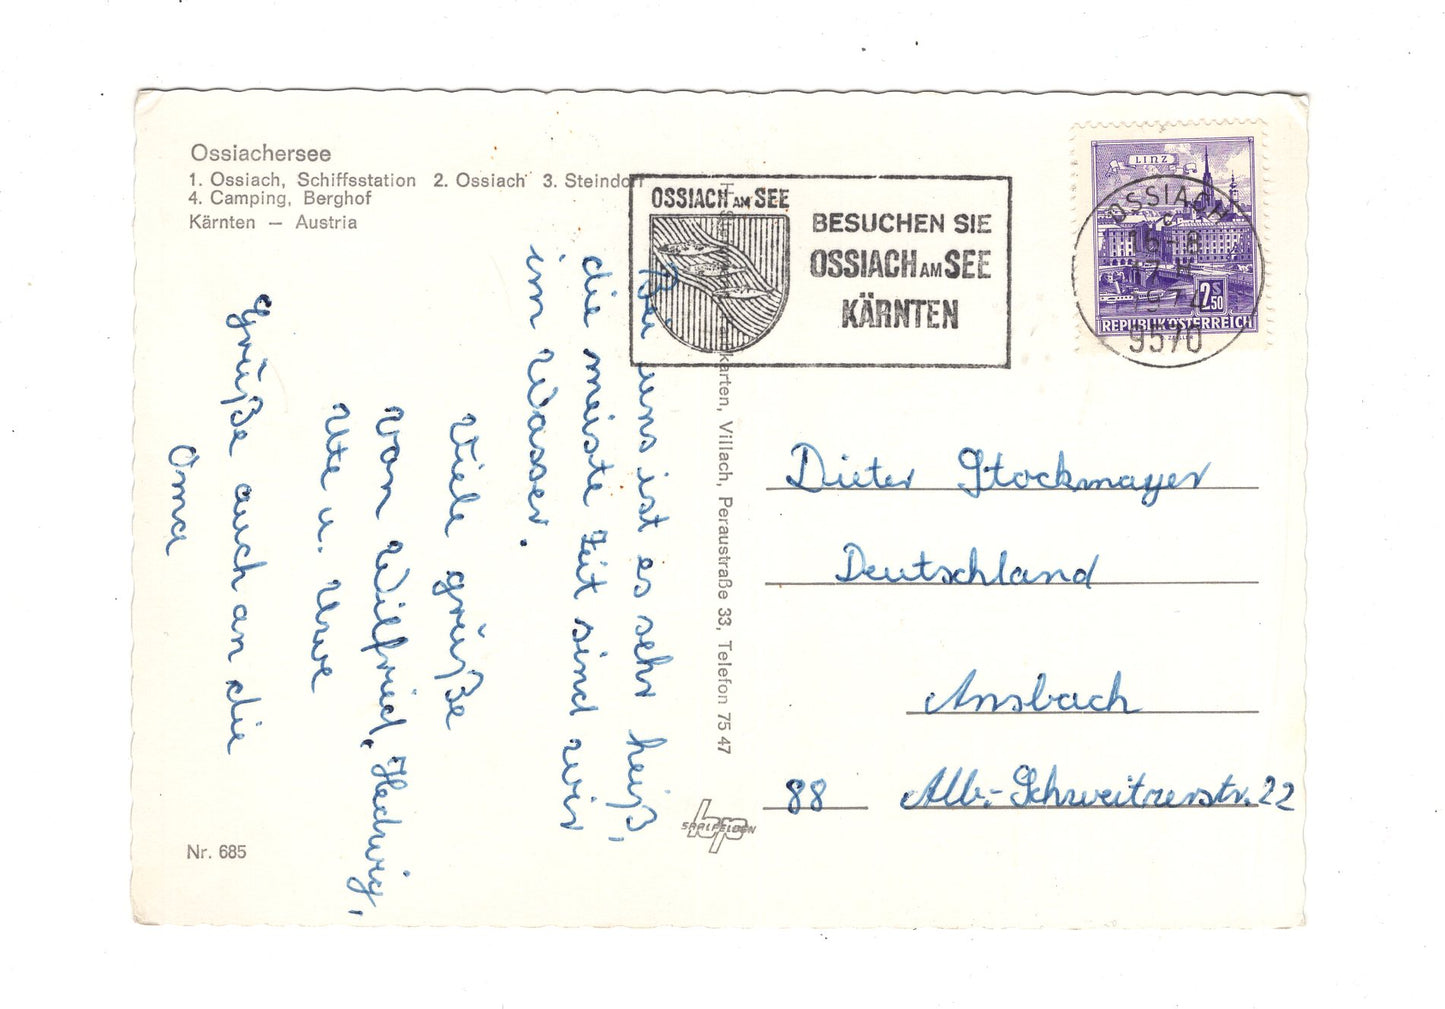 Ossiachersee
1. Ossiach, Schiffsstation 2. Ossiach 3. Steindorf
4. Camping, Berghof
Kärnten — Austria
OSSIACH AM SEE
BESUCHEN SIE
OSSIACH AM SEE
KÄRNTEN
LINZ
2.50 S
REPUBLIK ÖSTERREICH
OSSIACH
c
1974
9570
Bei uns ist es sehr heiß,
die meiste Zeit sind wir
im Wasser.
Viele grüße
von Wilfried, Hedwig,
Ute u. Uwe
Grüße auch an die
Oma
karten, Villach, Peraustraße 33, Telefon 75 47
Dieter Stockmayer
Deutschland
Ansbach
88 Alb.-Schweitzerstr. 22
Nr. 685
SAALFELDEN